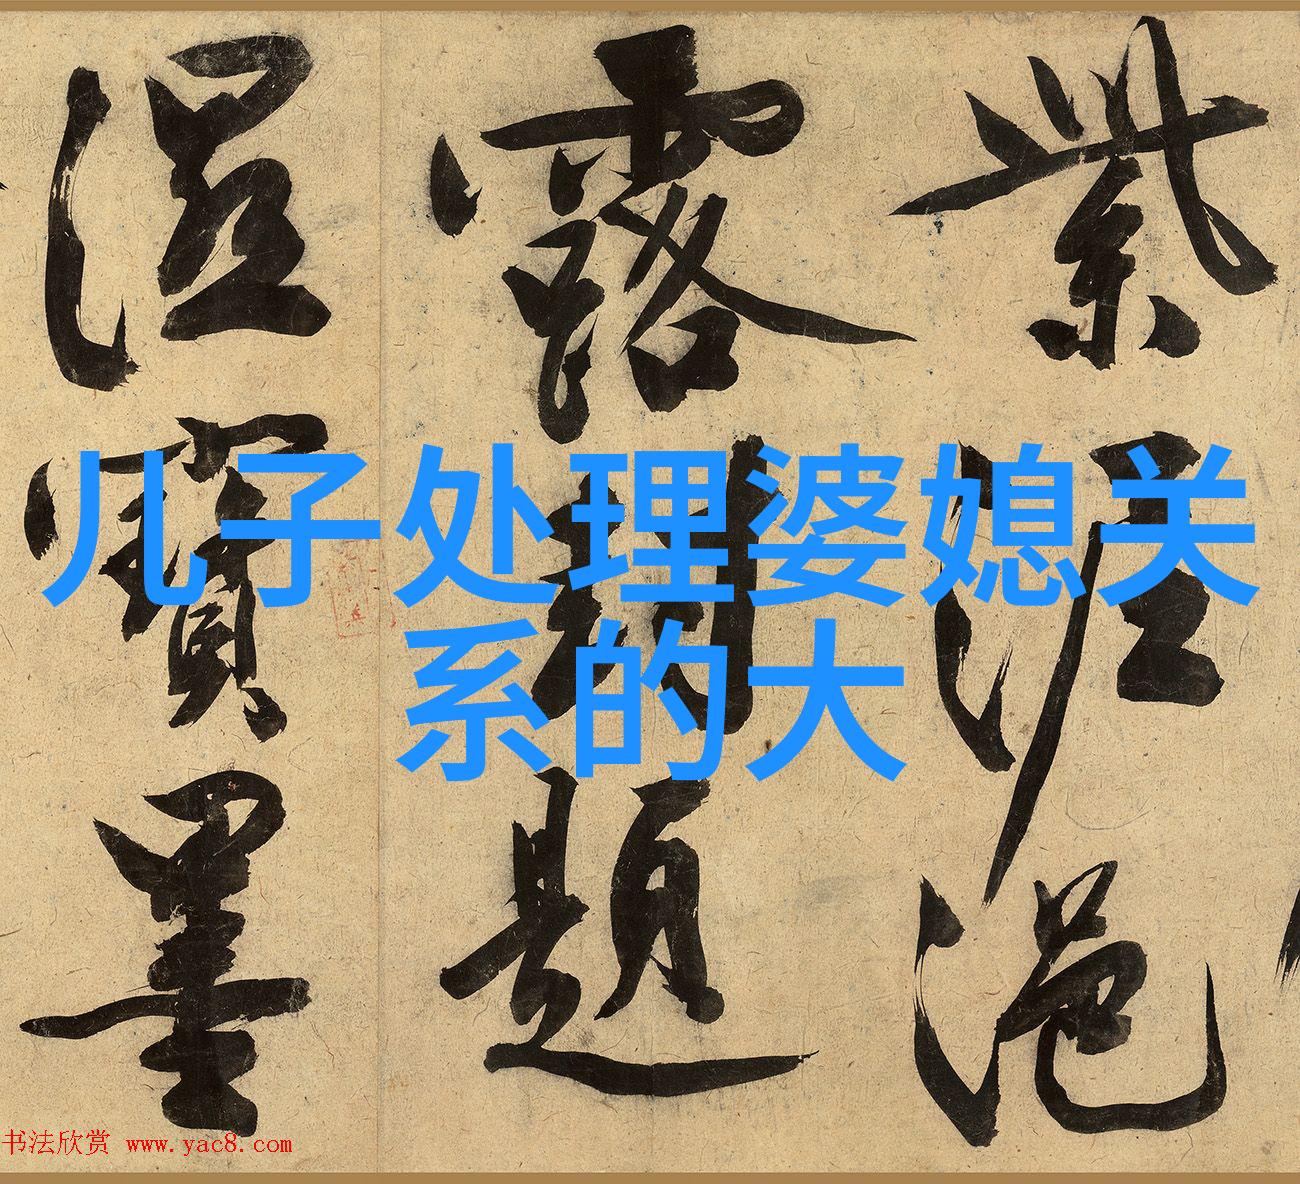 紫泥浥
露封題
溼寶墨
儿子处理婆媳关
系的大
书法欣赏 www.yac8.com